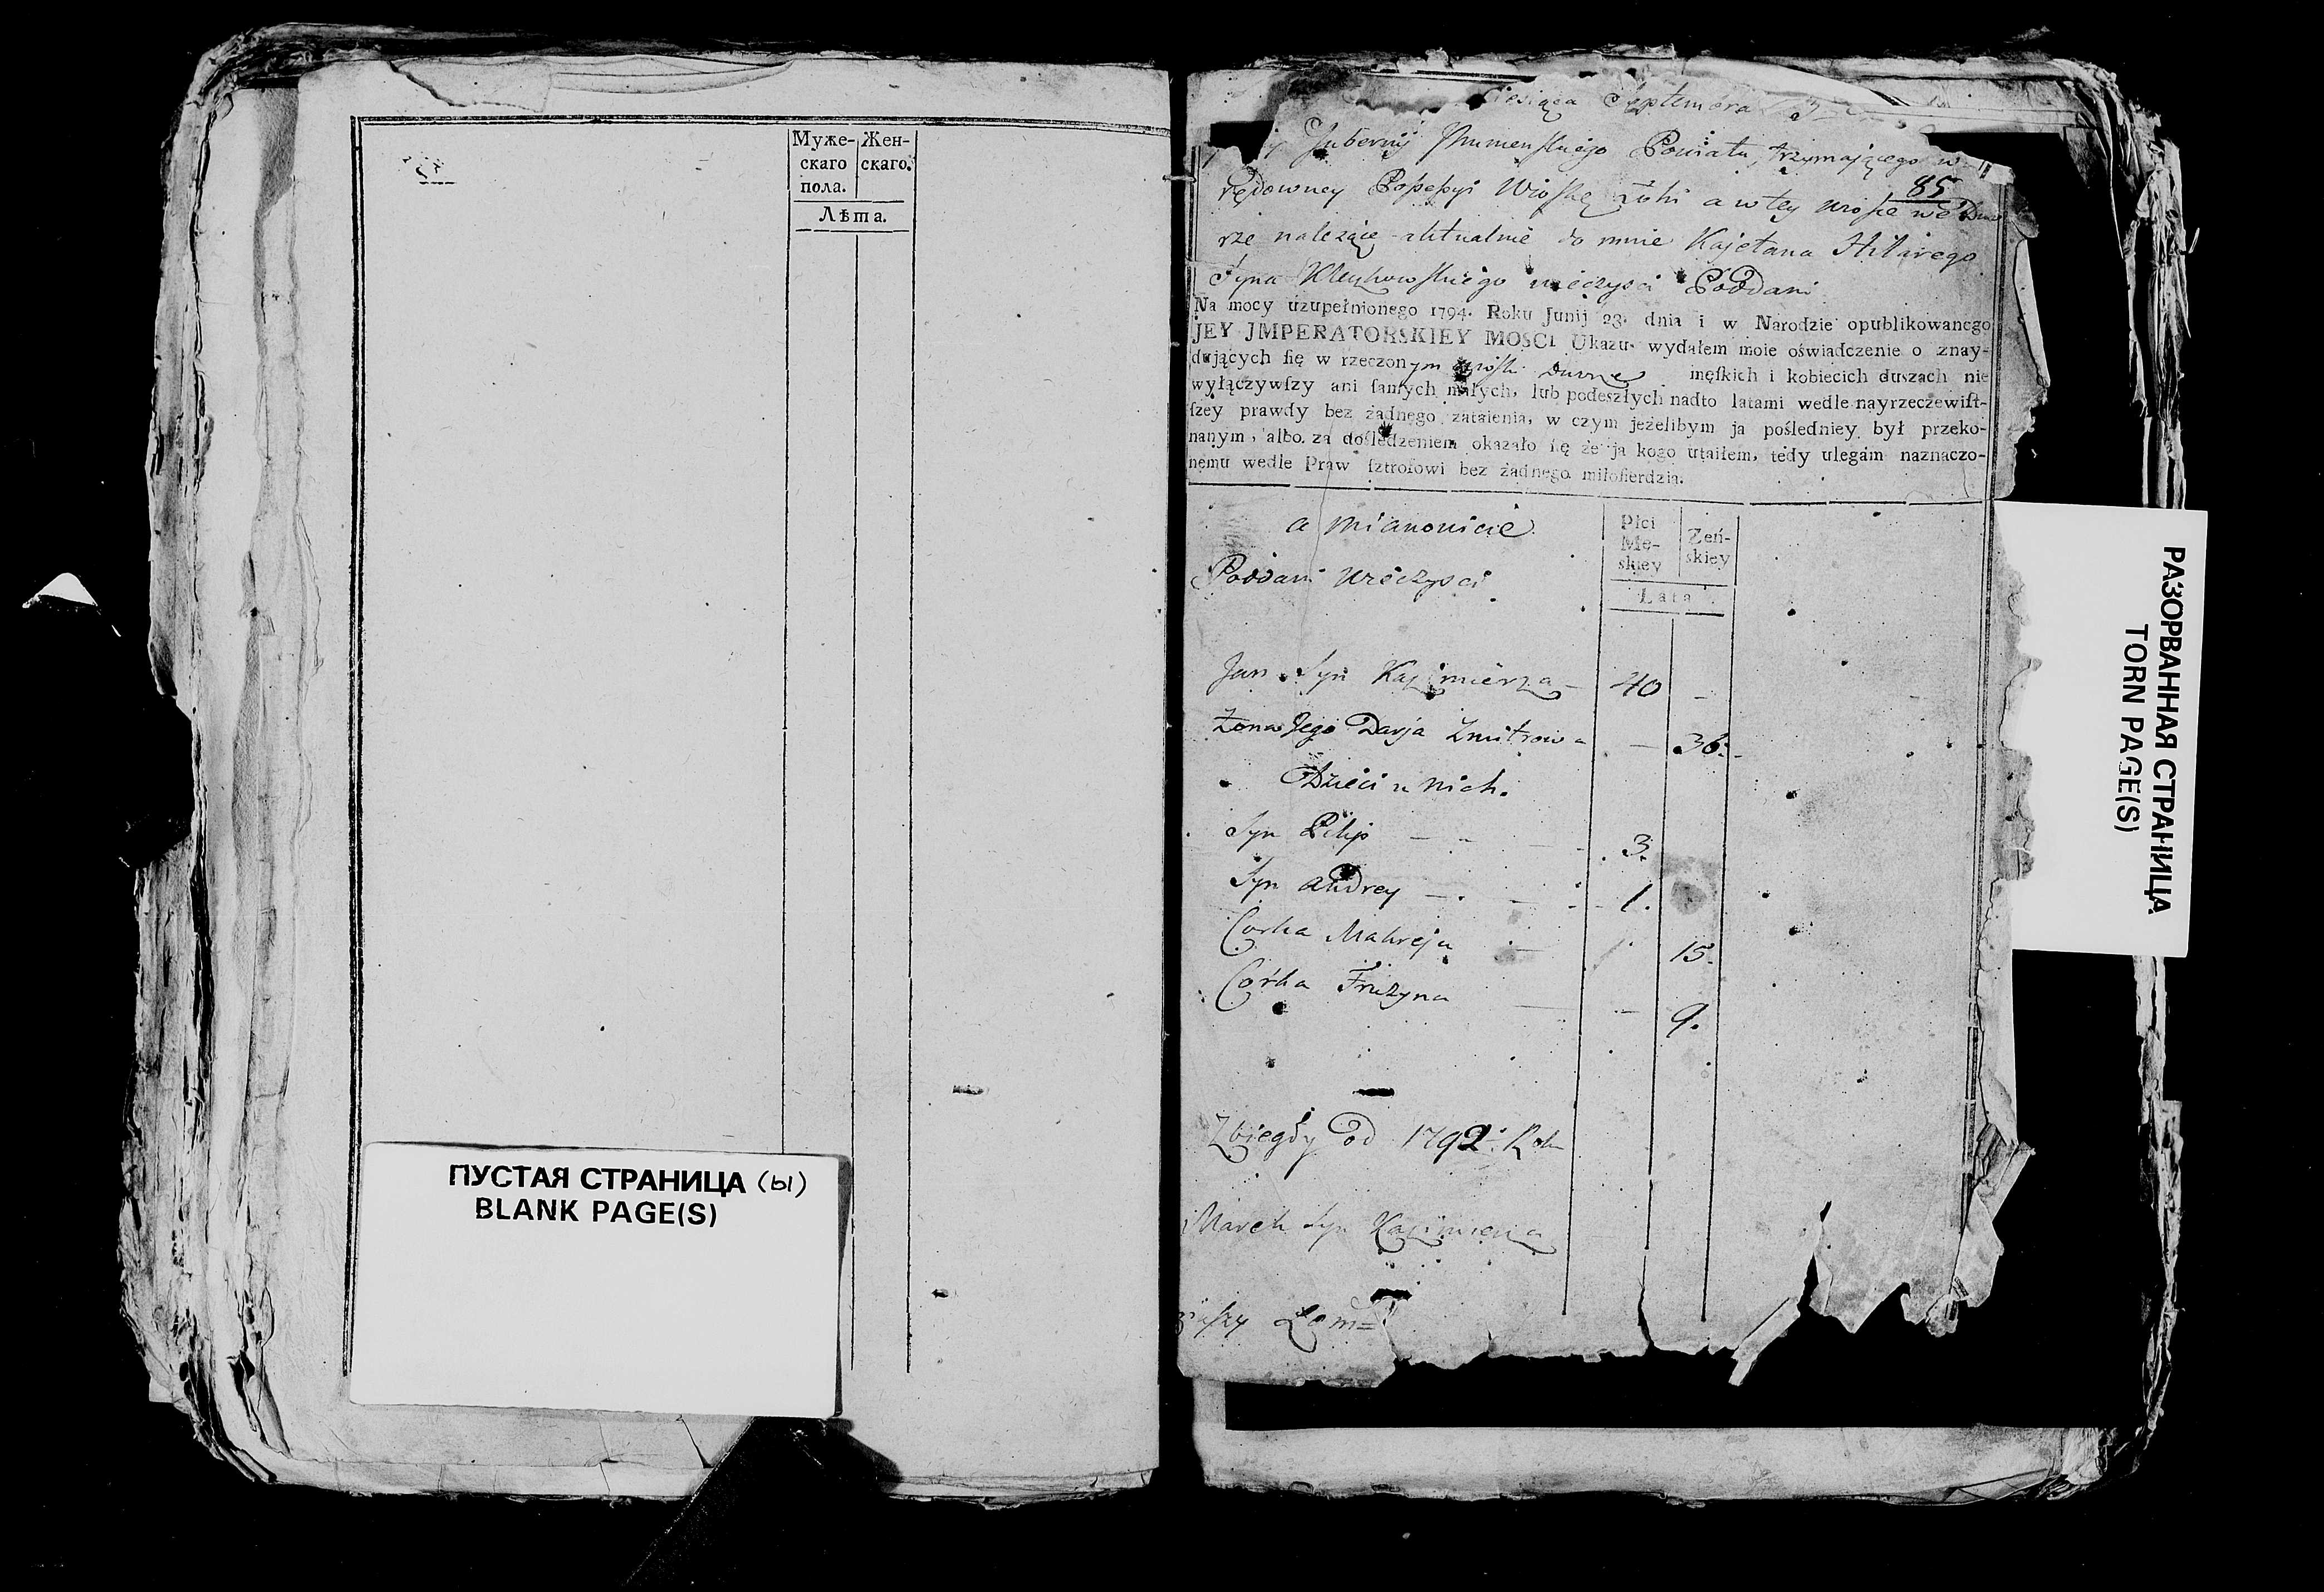 Муже- Жен-
скаго скаго.
пола.
Лѣта.
ПУСТАЯ СТРАНИЦА (ы)
BLANK PAGE(S)
Septembra
Gubernij Jhumenskiego Powiatu, trzymającego w
85
rędowney Possessyi Wioskę a w tey
rze należące aktualnie do mnie Kajetana Hilarego
Syna wieczysci Poddani
Na mocy uzupełnionego 1794. Roku Junij 23. dnia i w Narodzie opublikowanego
JEY JMPERATORSKIEY MOSCI Ukazu. wydałem moie oświadczenie o znay-
dujących ſię w rzeczonym męſkich i kobiecich duszach nie
wyłączywſzy ani ſamych małych, lub podeszłych nadto latami wedle nayrzeczewiſt-
ſzey prawdy bez żadnego zataienia, w czym jeżelibym ja pośledniey był przeko-
nanym, albo za dośledzeniem okazało ſię że ja kogo utaiłem, tedy ulegam naznaczo-
nemu wedle Praw ſztrofowi bez żadnego miłoſierdzia.
a mianowicie
Płci Zeń-
Mę- skiey
skiey
Lata
Poddani wieczysci
Jan Syn Kazimierza – 40 –
Żona Jego Darja Zmitrowa – 36.
Dzieci u nich.
Syn Pilip – 3.
Syn Andrey – 1.
Corka Mahreja – 15.
Córka Fruzyna – 9.
Zbiegły od 1792. Roku
Marek Syn Kazimierza
РАЗОРВАННАЯ СТРАНИЦА
TORN PAGE(S)